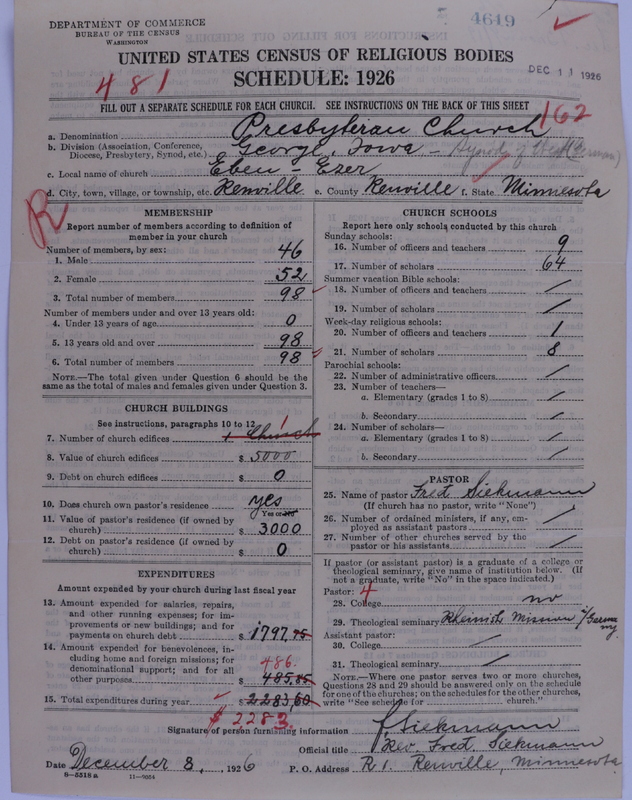 DEPARTMENT OF COMMERCE
BUREAU OF THE CENSUS
WASHINGTON
4619
UNITED STATES CENSUS OF RELIGIOUS BODIES
SCHEDULE: 1926
DEC 11 1926
481
FILL OUT A SEPARATE SCHEDULE FOR EACH CHURCH. SEE INSTRUCTIONS ON THE BACK OF THIS SHEET
162
a. Denomination Presbyterian Church
b. Division (Association, Conference, Diocese, Presbytery, Synod, etc.) George, Iowa - Synod of West (German)
c. Local name of church Eben - Ezer
d. City, town, village, or township, etc. Renville e. County Renville f. State Minnesota
R
MEMBERSHIP
Report number of members according to definition of
member in your church
Number of members, by sex:
1. Male 46
2. Female 52
3. Total number of members 98
Number of members under and over 13 years old:
4. Under 13 years of age 0
5. 13 years old and over 98
6. Total number of members 98
NOTE.—The total given under Question 6 should be the
same as the total of males and females given under Question 3.
CHURCH BUILDINGS
See instructions, paragraphs 10 to 12
7. Number of church edifices 1 Church 1
8. Value of church edifices $ 5000
9. Debt on church edifices $ 0
10. Does church own pastor's residence yes
Yes or No
11. Value of pastor's residence (if owned by
church) $ 3000
12. Debt on pastor's residence (if owned by
church) $ 0
EXPENDITURES
Amount expended by your church during last fiscal year
13. Amount expended for salaries, repairs,
and other running expenses; for im-
provements or new buildings; and for
payments on church debt $ 1797.75
14. Amount expended for benevolences, in-
cluding home and foreign missions; for
denominational support; and for all
other purposes $ 485.85
486.
15. Total expenditures during year $ 2283,60
$ 2283.
CHURCH SCHOOLS
Report here only schools conducted by this church
Sunday schools:
16. Number of officers and teachers 9
17. Number of scholars 64
Summer vacation Bible schools:
18. Number of officers and teachers /
19. Number of scholars /
Week-day religious schools:
20. Number of officers and teachers 1
21. Number of scholars 8
Parochial schools:
22. Number of administrative officers /
23. Number of teachers—
a. Elementary (grades 1 to 8) /
b. Secondary /
24. Number of scholars—
a. Elementary (grades 1 to 8) /
b. Secondary /
PASTOR
25. Name of pastor Fred Siekmann
(If church has no pastor, write "None")
26. Number of ordained ministers, if any, em-
ployed as assistant pastors /
27. Number of other churches served by the
pastor or his assistants /
If pastor (or assistant pastor) is a graduate of a college or
theological seminary, give name of institution below. (If
not a graduate, write "No" in the space indicated.)
Pastor: 4
28. College no
29. Theological seminary Rheinish Mission i/Germany
Assistant pastor:
30. College /
31. Theological seminary /
NOTE.—Where one pastor serves two or more churches,
Questions 28 and 29 should be answered only on the schedule
for one of the churches; on the schedules for the other churches,
write "See schedule for church."
Signature of person furnishing information F. Siekmann
Official title Rev. Fred. Siekmann
Date December 8, 1926 P. O. Address R 1. Renville, Minnesota
8-5518 a 11-9064